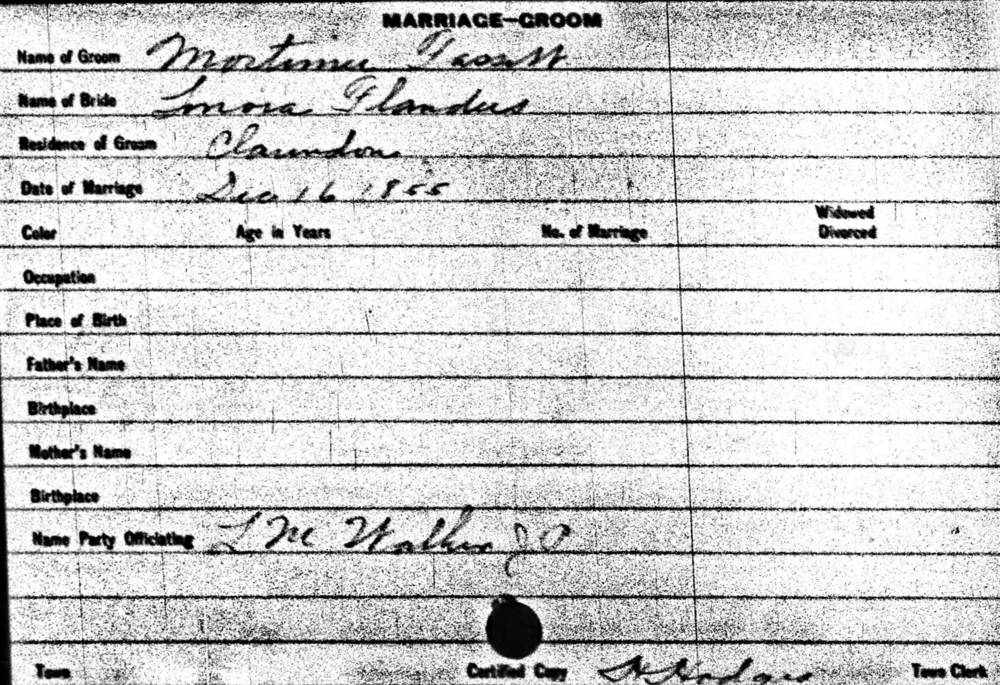 MARRIAGE—GROOM
Name of Groom Mortimer Fassett
Name of Bride Lonora Flanders
Residence of Groom Clarendon
Date of Marriage Dec 16 1855
Widowed
Color Age in Years No. of Marriage Divorced
Occupation
Place of Birth
Father's Name
Birthplace
Mother's Name
Birthplace
Name Party Officiating L M Walker J P
Town Certified Copy Hodges Town Clerk